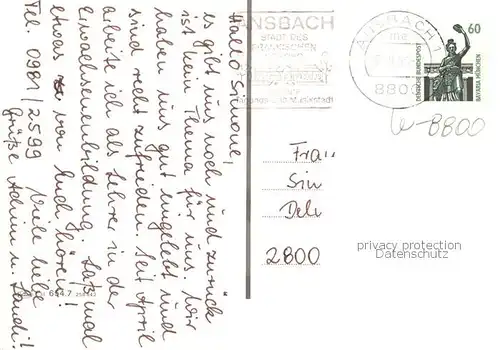 Hallo Simone,
es gibt uns noch und zurück
ist kein Thema für uns. Wir
haben uns gut eingelebt und
sind recht zufrieden. Seit April
arbeite ich als Lehrer in der
Erwachsenenbildung. Laßt mal
etwas von Euch hören!
Tel. 0981/2599 Viele liebe
Grüße Achim u. Sandi!
ANSBACH
STADT DES
FRÄNKISCHEN
ANSBACH 1
8800
60
DEUTSCHE BUNDESPOST
BAVARIA MÜNCHEN
8800
Frau
Sim
Del
2800
privacy protection
Datenschutz
694.7